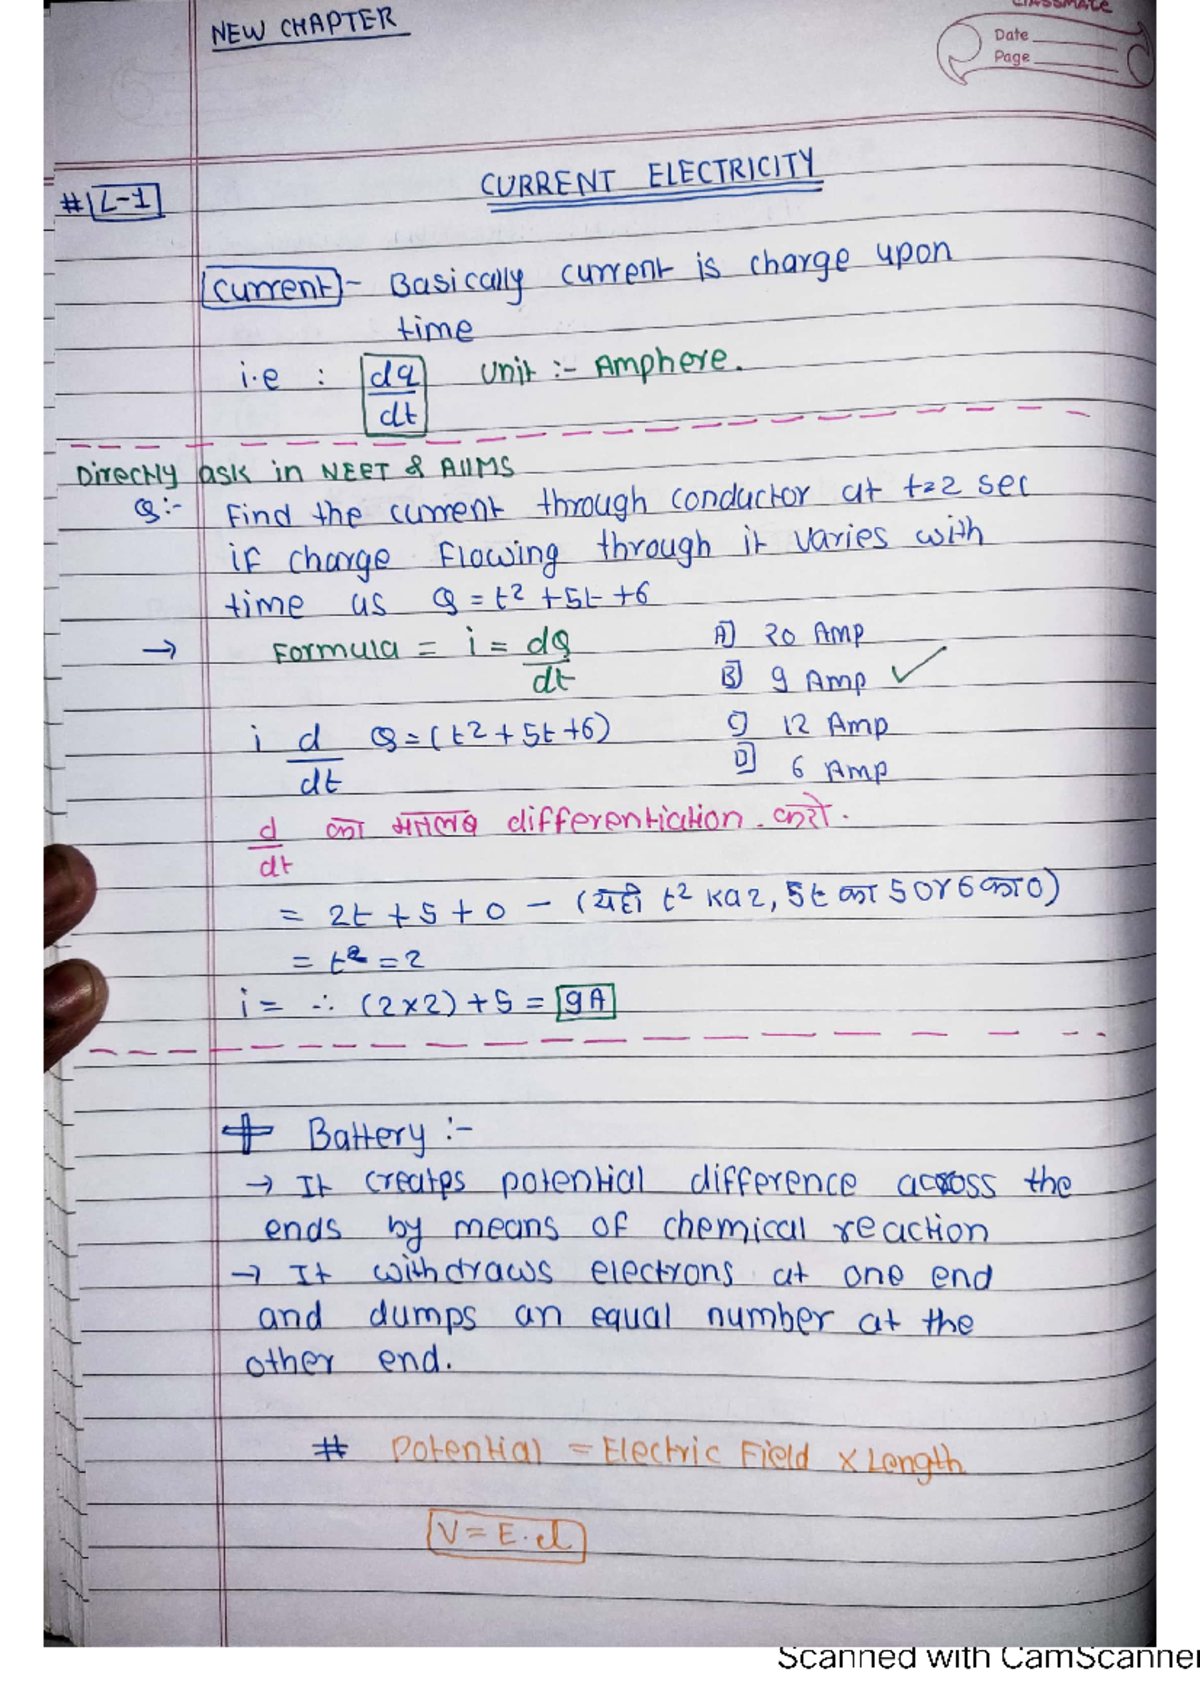 NEW CHAPTER
classmate
Date
Page
#L-1
CURRENT ELECTRICITY
current - Basically current is charge upon
time
i.e : dq/dt unit :- Amphere.
Directly ask in NEET & AIIMS
Q:- Find the current through conductor at t=2 sec
if charge flowing through it varies with
time as Q = t² + 5t + 6
→ Formula = i = dQ/dt
A] 20 Amp
B] 9 Amp ✓
i d/dt Q = (t² + 5t + 6)
C] 12 Amp
D] 6 Amp
d/dt का मतलब differentiation करो.
= 2t + 5 + 0 - (यही t² का 2, 5t का 5 or 6 का 0)
= t = 2
i = ∴ (2×2) + 5 = 9A
+ Battery :-
→ It creates potential difference across the
ends by means of chemical reaction
→ It withdraws electrons at one end
and dumps an equal number at the
other end.
# Potential = Electric Field × Length
V = E.d
Scanned with CamScanner